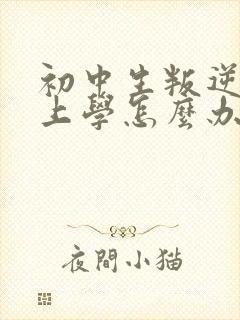 初中生叛逆
上學怎麼办
夜間小猫